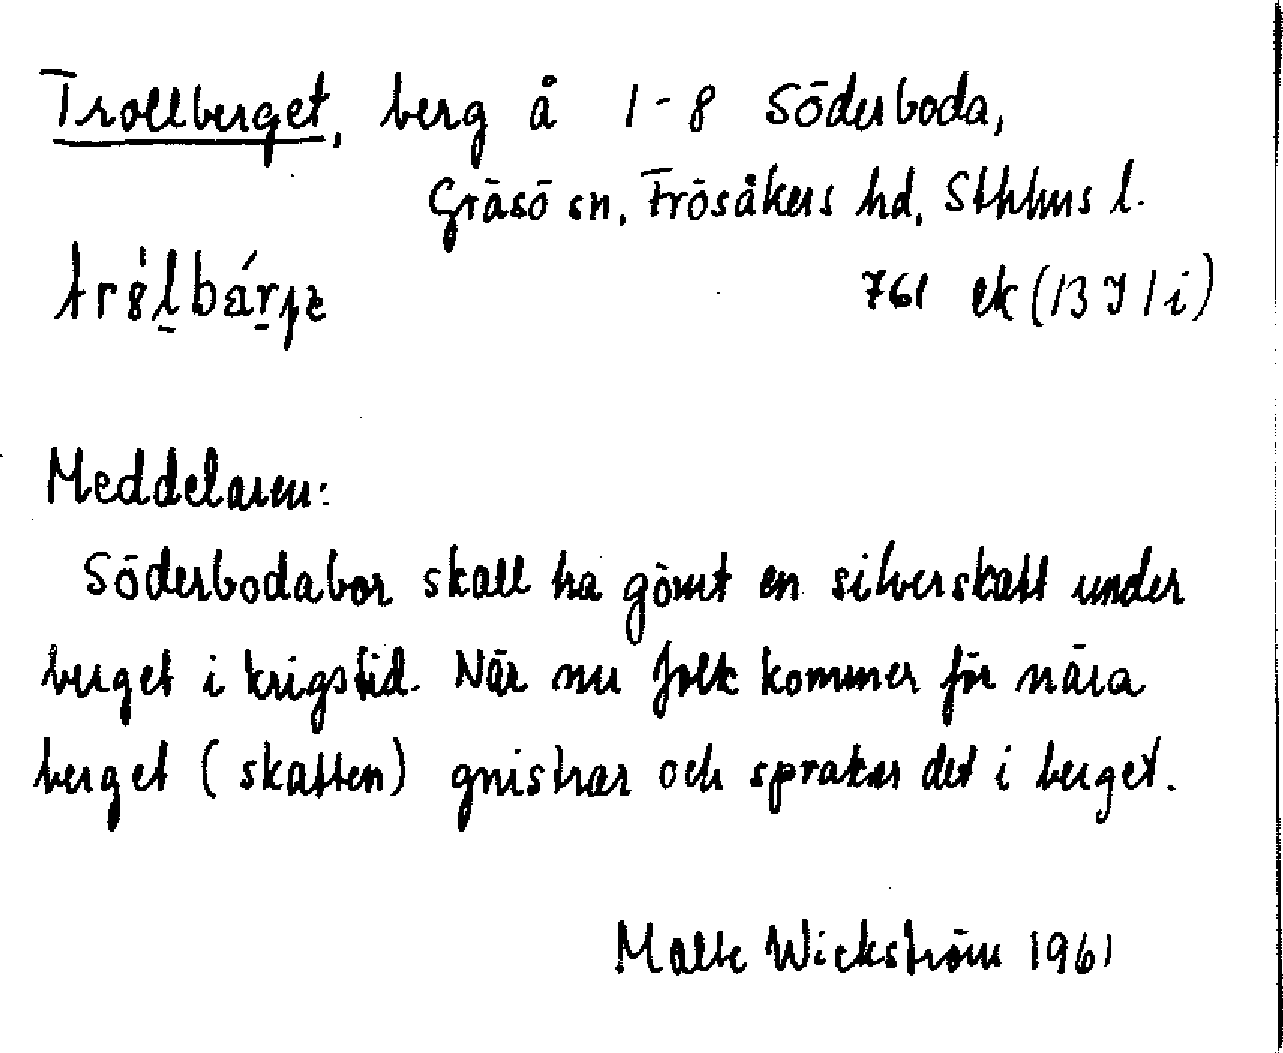 Trollberget, berg å 1-8 Söderboda,
Gräsö sn, Frösåkers hd, Sthlms l.
761 ek (13 I 1 i)
Meddelaren:
Söderbodabor skall ha gömt en silverskatt under
berget i krigstid. När nu folk kommer för nära
berget (skatten) gnistrar och sprakar det i berget.
Malte Wickström 1961